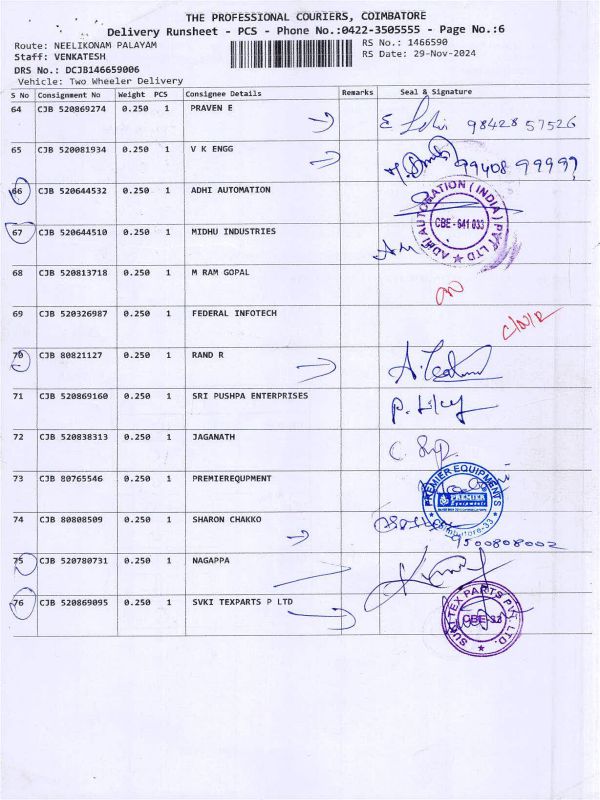 THE PROFESSIONAL COURIERS, COIMBATORE
Delivery Runsheet - PCS - Phone No.:0422-3505555 - Page No.:6
Route: NEELIKONAM PALAYAM
RS No.: 1466590
Staff: VENKATESH
RS Date: 29-Nov-2024
DRS No.: DCJB146659006
Vehicle: Two Wheeler Delivery
S No Consignment No Weight PCS Consignee Details Remarks Seal & Signature
64 CJB 520869274 0.250 1 PRAVEN E 98428 57526
65 CJB 520081934 0.250 1 V K ENGG 99408 99999
66 CJB 520644532 0.250 1 ADHI AUTOMATION
ADHI AUTOMATION (INDIA) PVT LTD
CBE - 641 033
67 CJB 520644510 0.250 1 MIDHU INDUSTRIES
68 CJB 520813718 0.250 1 M RAM GOPAL
69 CJB 520326987 0.250 1 FEDERAL INFOTECH
70 CJB 80821127 0.250 1 RAND R
71 CJB 520869160 0.250 1 SRI PUSHPA ENTERPRISES
72 CJB 520838313 0.250 1 JAGANATH
73 CJB 80765546 0.250 1 PREMIEREQUPMENT
PREMIER EQUIPMENTS
Coimbatore-33
74 CJB 80808509 0.250 1 SHARON CHAKKO
9500808002
75 CJB 520780731 0.250 1 NAGAPPA
76 CJB 520869095 0.250 1 SVKI TEXPARTS P LTD
SUKI TEX PARTS PVT. LTD.
CBE-33